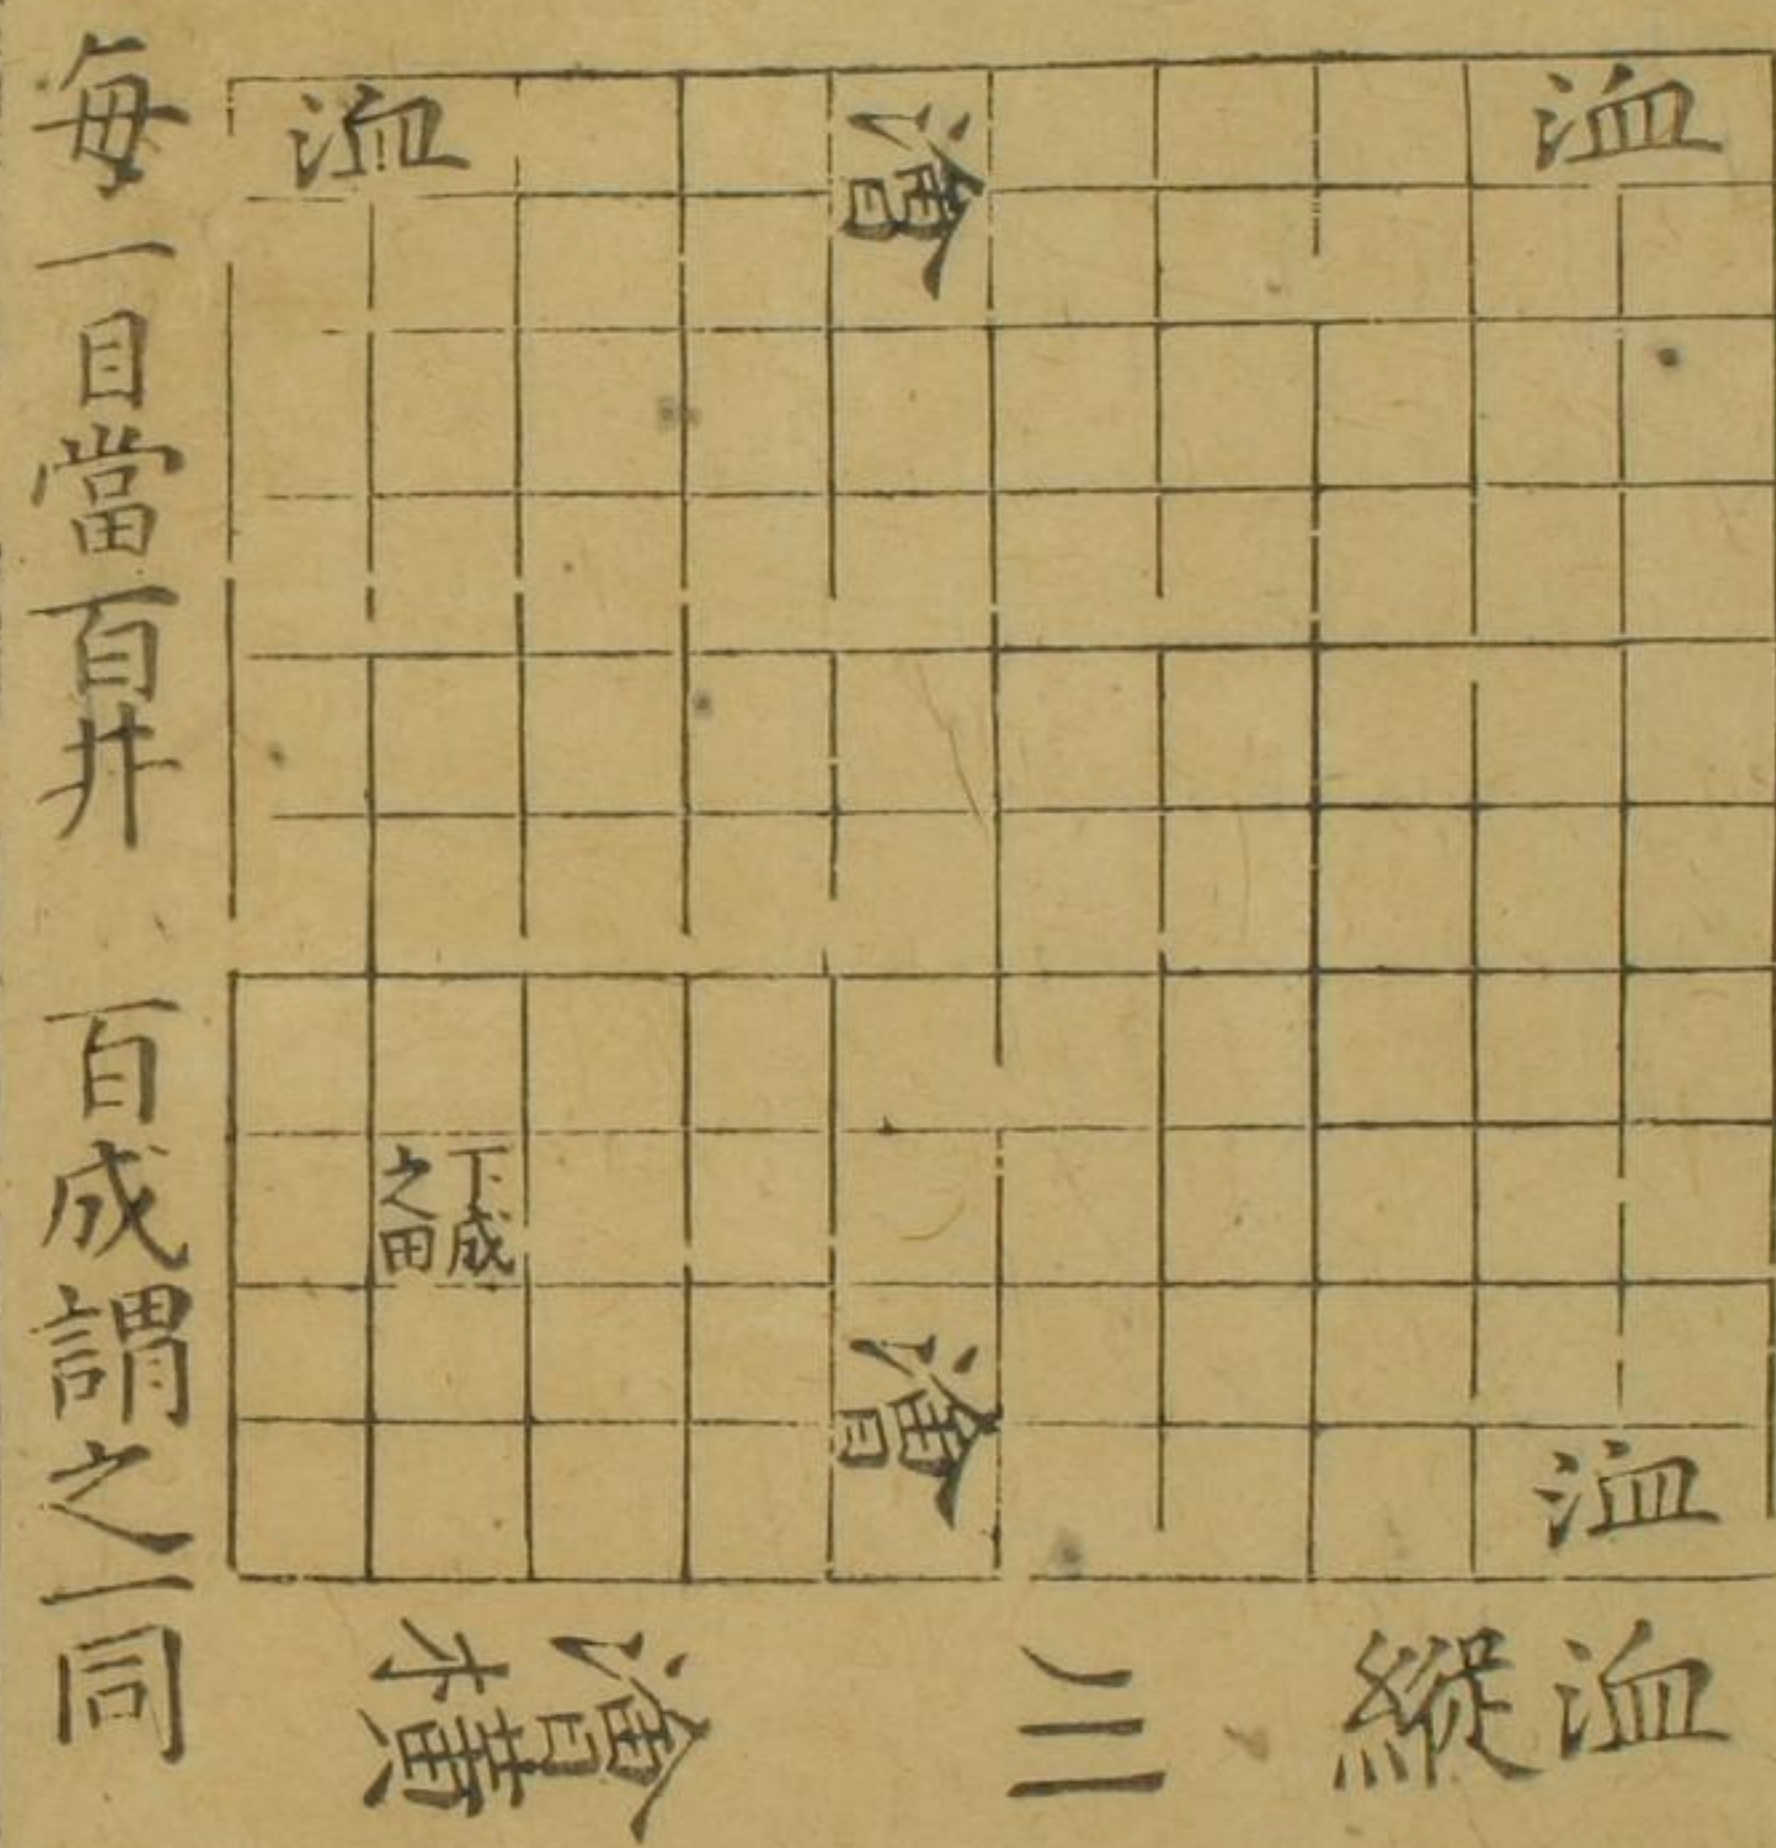 洫
洫
澮
洫
澮
下成
之田
洫縱
三
澮橫
每一目當百井 百成謂之一同